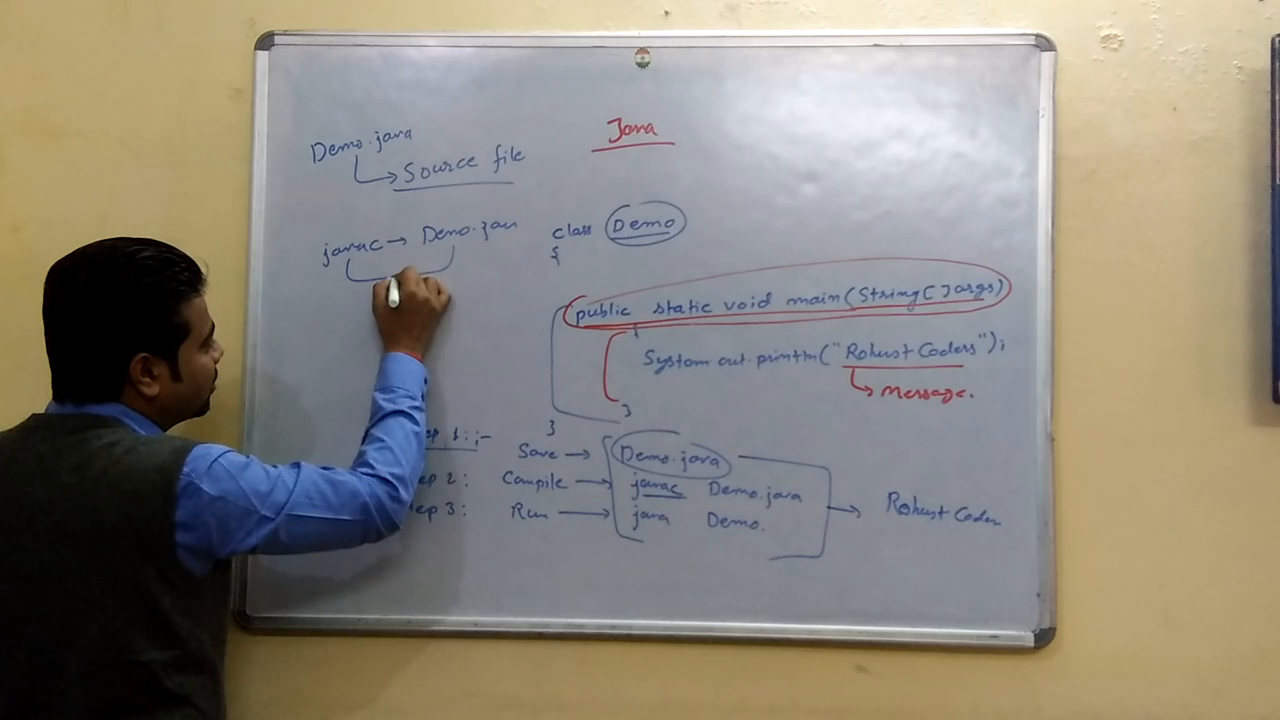 Java
Demo.java
Source file
javac → Demo.java
class Demo
{
public static void main(String[]args)
{
System.out.println("Robust Coders");
Message.
}
}
ep 1:;-
Save → Demo.java
ep 2: Compile → javac Demo.java
ep 3: Run → java Demo.
→ Robust Coder